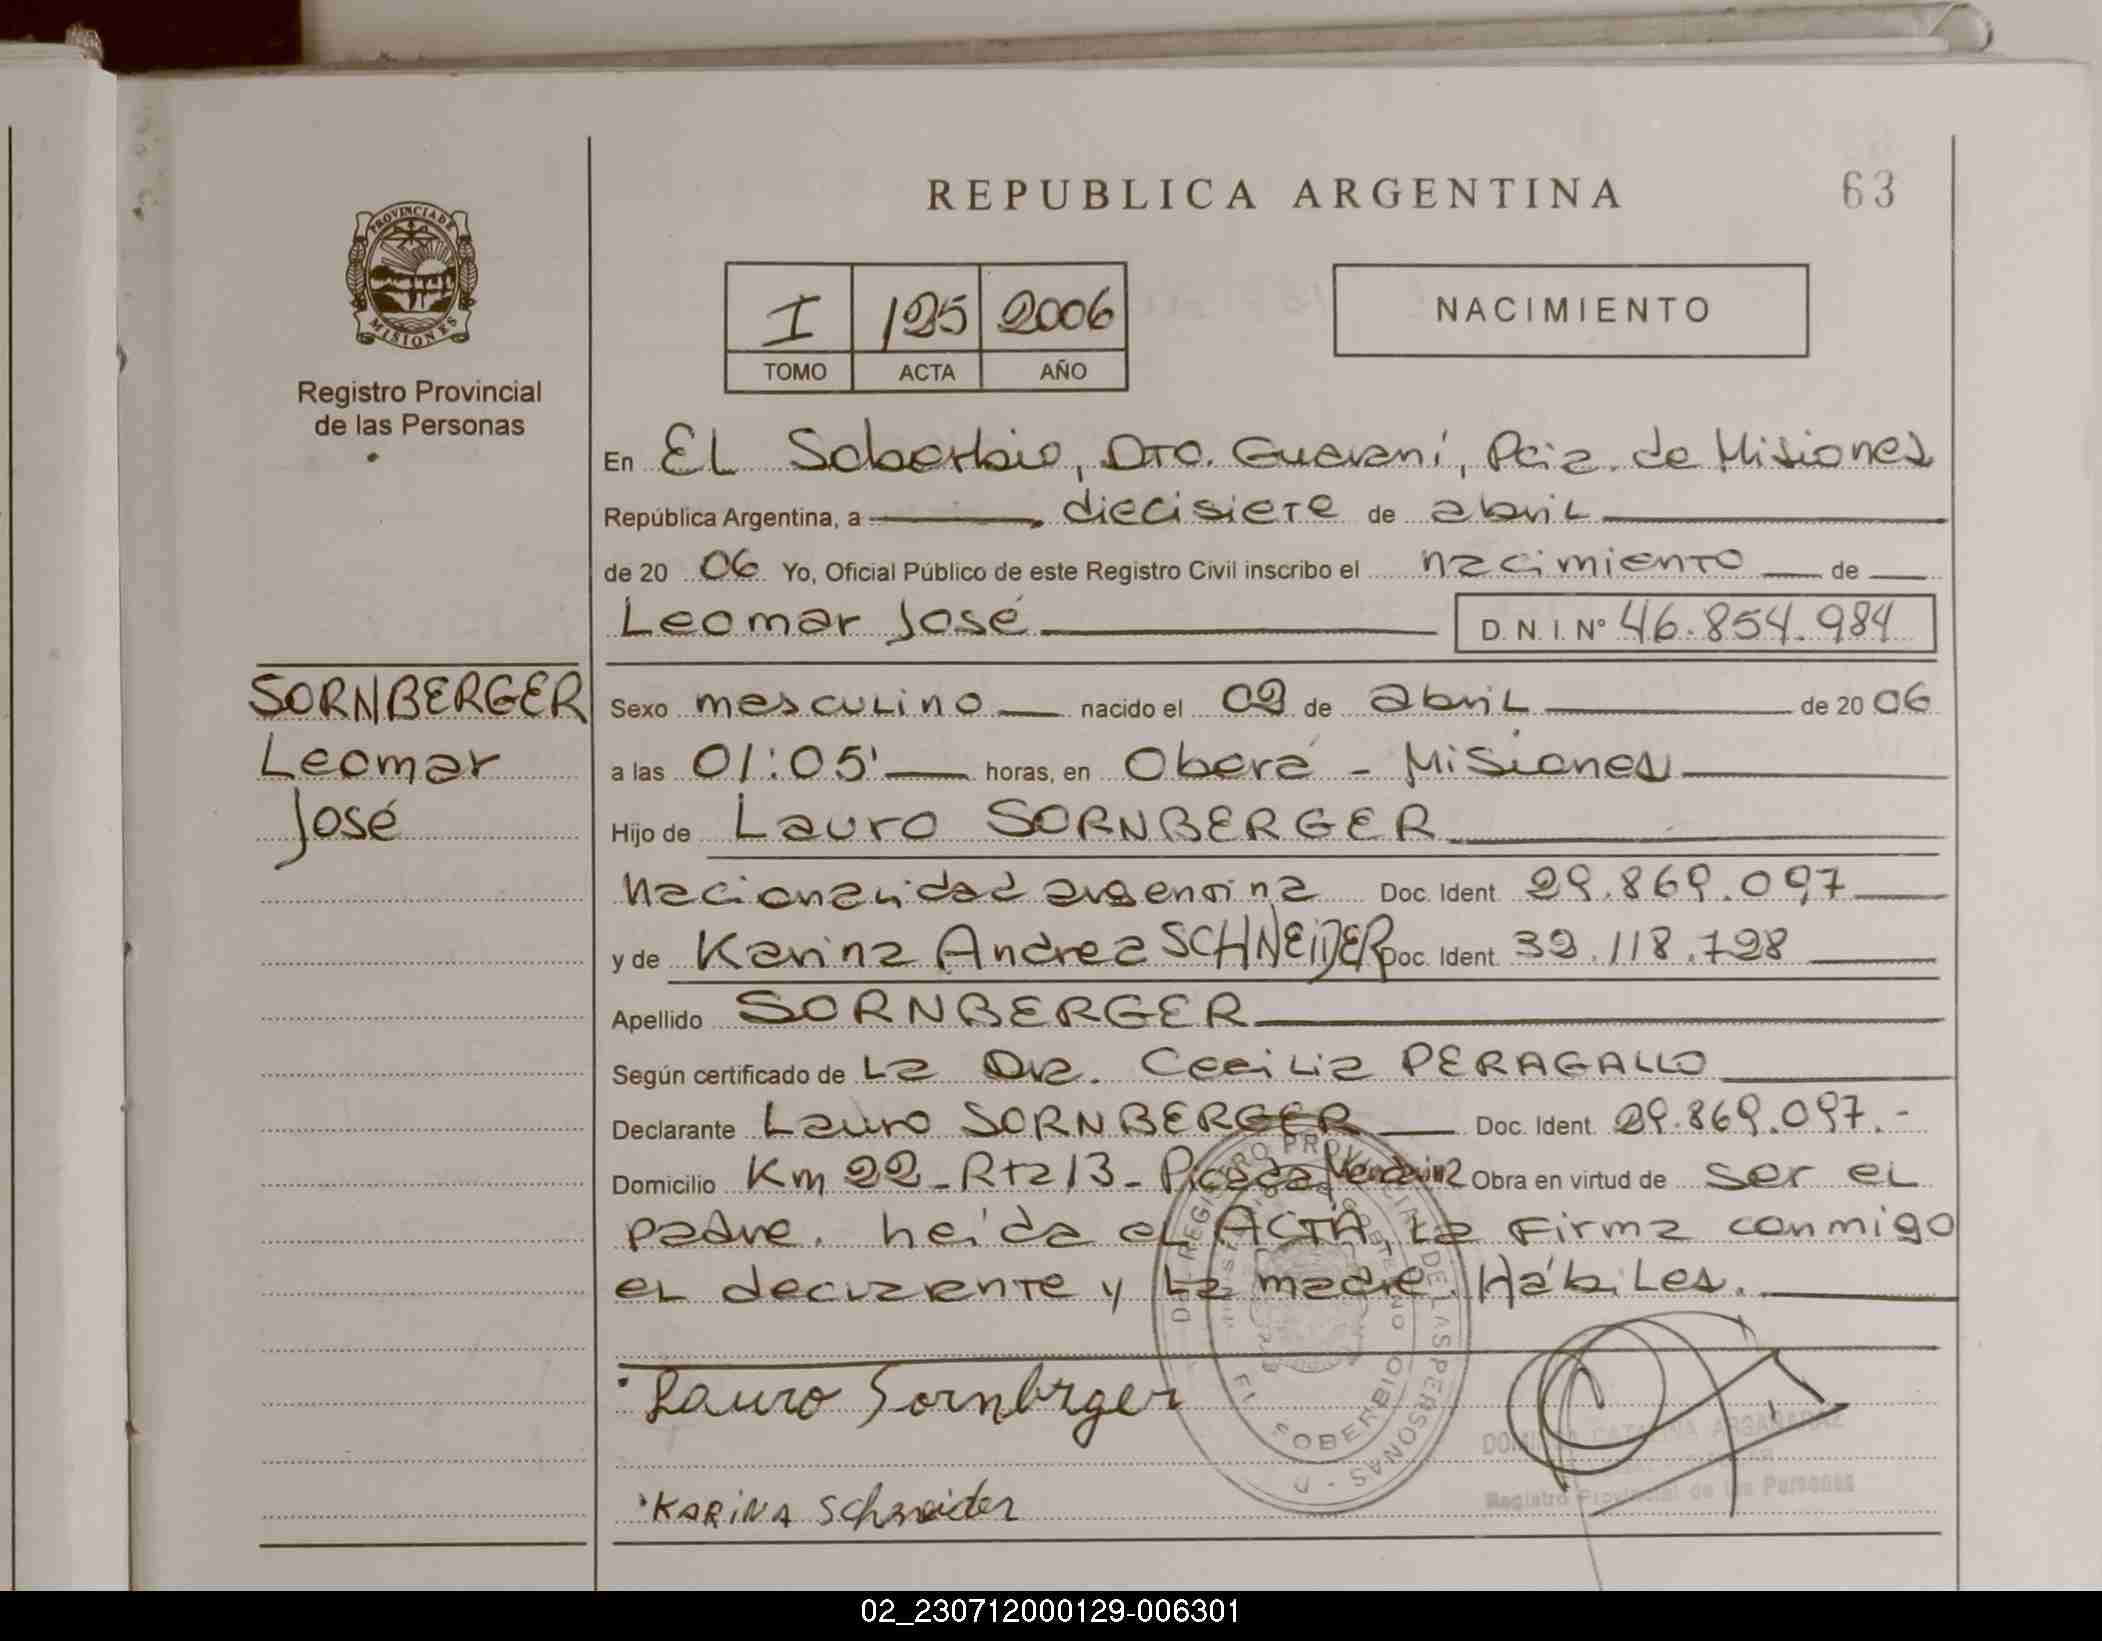 REPUBLICA ARGENTINA
63
PROVINCIA DE
MISIONES
Registro Provincial
de las Personas
I 125 2006
TOMO ACTA AÑO
NACIMIENTO
En EL Soberbio, Dto. Guaraní, Pcia. de Misiones
República Argentina, a diecisiete de abril
de 20 06 Yo, Oficial Público de este Registro Civil inscribo el nacimiento de
Leomar José D. N. I. Nº 46.854.984
SORNBERGER
Leomar
José
Sexo masculino nacido el 02 de abril de 20 06
a las 01:05' horas, en Oberá - Misiones
Hijo de Lauro SORNBERGER
nacionalidad argentina Doc. Ident. 29.869.097
y de Karina Andrea SCHNEIDER Doc. Ident. 32.118.728
Apellido SORNBERGER
Según certificado de La Dra. Cecilia PERAGALLO
Declarante Lauro SORNBERGER Doc. Ident. 29.869.097.-
Domicilio Km 22 - Rta 13 - Picada Obra en virtud de ser el
padre. Leída el ACTA, la firma conmigo
el declarante y la madre. Hábiles.
Lauro Sornbrger
KARINA Schneider
EL SOBERBIO
Registro Provincial de las Personas
02_230712000129-006301